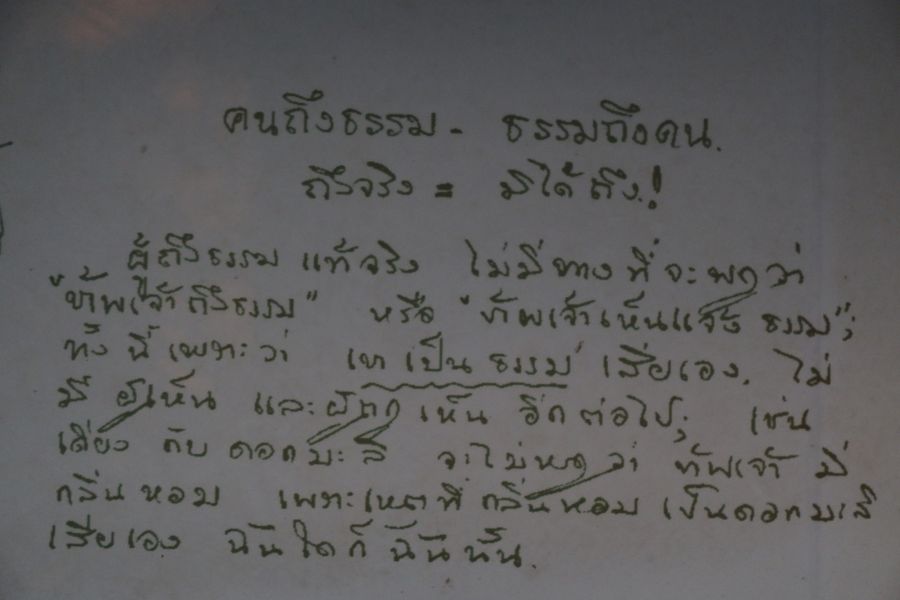 คนถึงธรรม - ธรรมถึงคน.
ถึงจริง = มิได้ถึง.!
ผู้ถึงธรรม แท้จริง ไม่มีทางที่จะพูดว่า
"ข้าพเจ้าถึงธรรม" หรือ "ข้าพเจ้าเห็นแจ้งธรรม";
ทั้งนี้เพราะว่า เขาเป็นธรรม เสียเอง. ไม่
มี ผู้เห็น และผู้ถูกเห็น อีกต่อไป; เช่น
เดียวกับ ดอกมะลิ จะไม่พูดว่า ข้าพเจ้า มี
กลิ่นหอม เพราะเหตุที่ กลิ่นหอม เป็นดอกมะลิ
เสียเอง ฉันใดก็ ฉันนั้น.